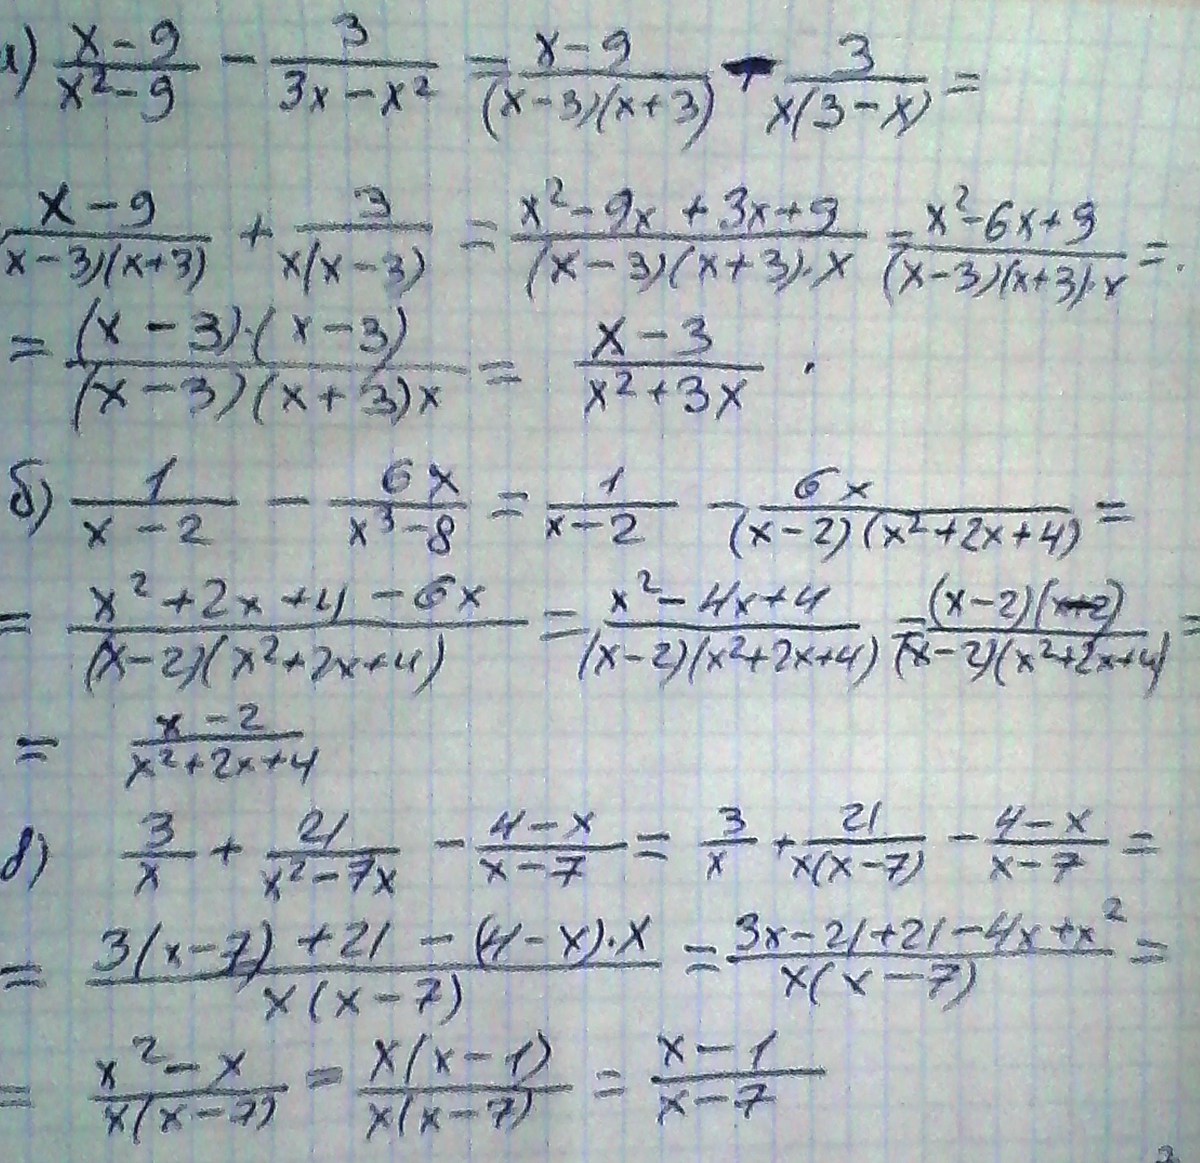 а) (x-9)/(x²-9) - 3/(3x-x²) = (x-9)/((x-3)(x+3)) - 3/(x(3-x)) =
(x-9)/(x-3)(x+3) + 3/(x(x-3)) = (x²-9x+3x+9)/((x-3)(x+3)·x) = (x²-6x+9)/((x-3)(x+3)·x) =
= ((x-3)·(x-3))/((x-3)(x+3)x) = (x-3)/(x²+3x).
б) 1/(x-2) - 6x/(x³-8) = 1/(x-2) - 6x/((x-2)(x²+2x+4)) =
= (x²+2x+4-6x)/((x-2)(x²+2x+4)) = (x²-4x+4)/((x-2)(x²+2x+4)) = ((x-2)(x-2))/((x-2)(x²+2x+4)) =
= (x-2)/(x²+2x+4)
в) 3/x + 21/(x²-7x) - (4-x)/(x-7) = 3/x + 21/(x(x-7)) - (4-x)/(x-7) =
= (3(x-7)+21-(4-x)·x)/(x(x-7)) = (3x-21+21-4x+x²)/(x(x-7)) =
= (x²-x)/(x(x-7)) = (x(x-1))/(x(x-7)) = (x-1)/(x-7)